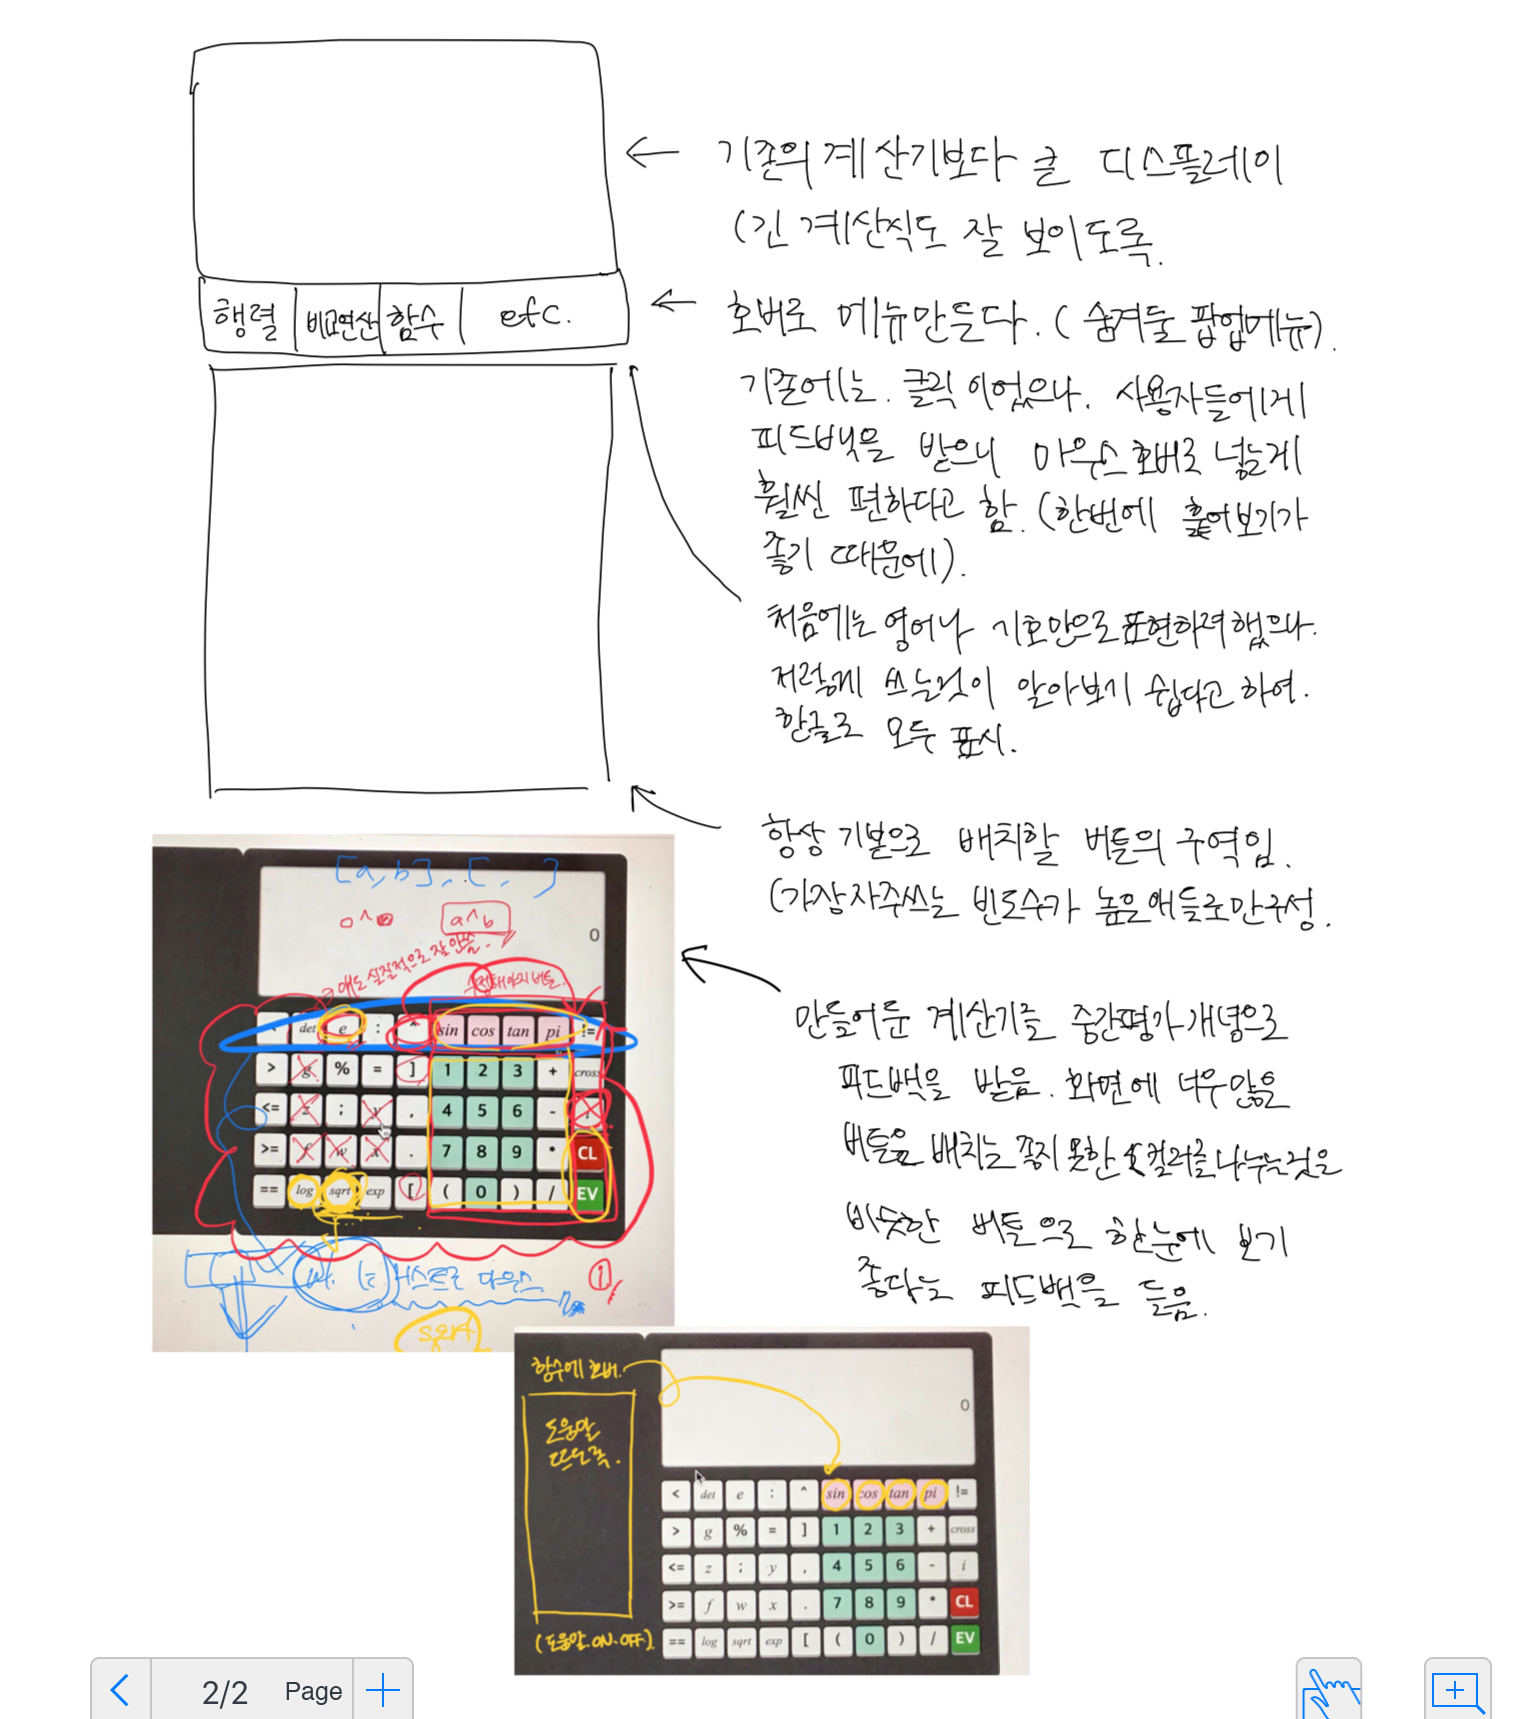 기존의 계산기보다 큰 디스플레이
(긴 계산식도 잘 보이도록.
행렬 비교연산 함수 etc.
호버로 메뉴만든다. (숨겨둘 팝업메뉴).
기존에는 클릭이었으나. 사용자들에게
피드백을 받으니 마우스 호버로 넣는게
훨씬 편하다고 함. (한번에 훑어보기가
좋기 때문에).
처음에는 영어나 기호만으로 표현하려했으나.
저렇게 쓰는것이 알아보기 쉽다고 하여.
한글로 모두 표시.
항상 기본으로 배치할 버튼의 구역임.
(가장 자주쓰는 빈도수가 높은애들로만 구성.
만들어둔 계산기를 중간평가개념으로
피드백을 받음. 화면에 너무많은
버튼을 배치는 좋지 못한 컬러를 나누는것은
비슷한 버튼으로 한눈에 보기
좋다는 피드백을 들음.
[a,b], [ , ]
a^b
0
얘도 실질적으로 잘 안씀.
버튼!
det e : ^ sin cos tan pi !=
> g % = ] 1 2 3 + cross
<= z ; y , 4 5 6 - i
>= f w x . 7 8 9 * CL
== log sqrt exp [ ( 0 ) / EV
마우스
①
sqrt
함수에 호버.
도움말
뜨도록.
(도움말. ON. OFF).
0
< det e : ^ sin cos tan pi !=
> g % = ] 1 2 3 + cross
<= z ; y , 4 5 6 - i
>= f w x . 7 8 9 * CL
== log sqrt exp [ ( 0 ) / EV
2/2 Page